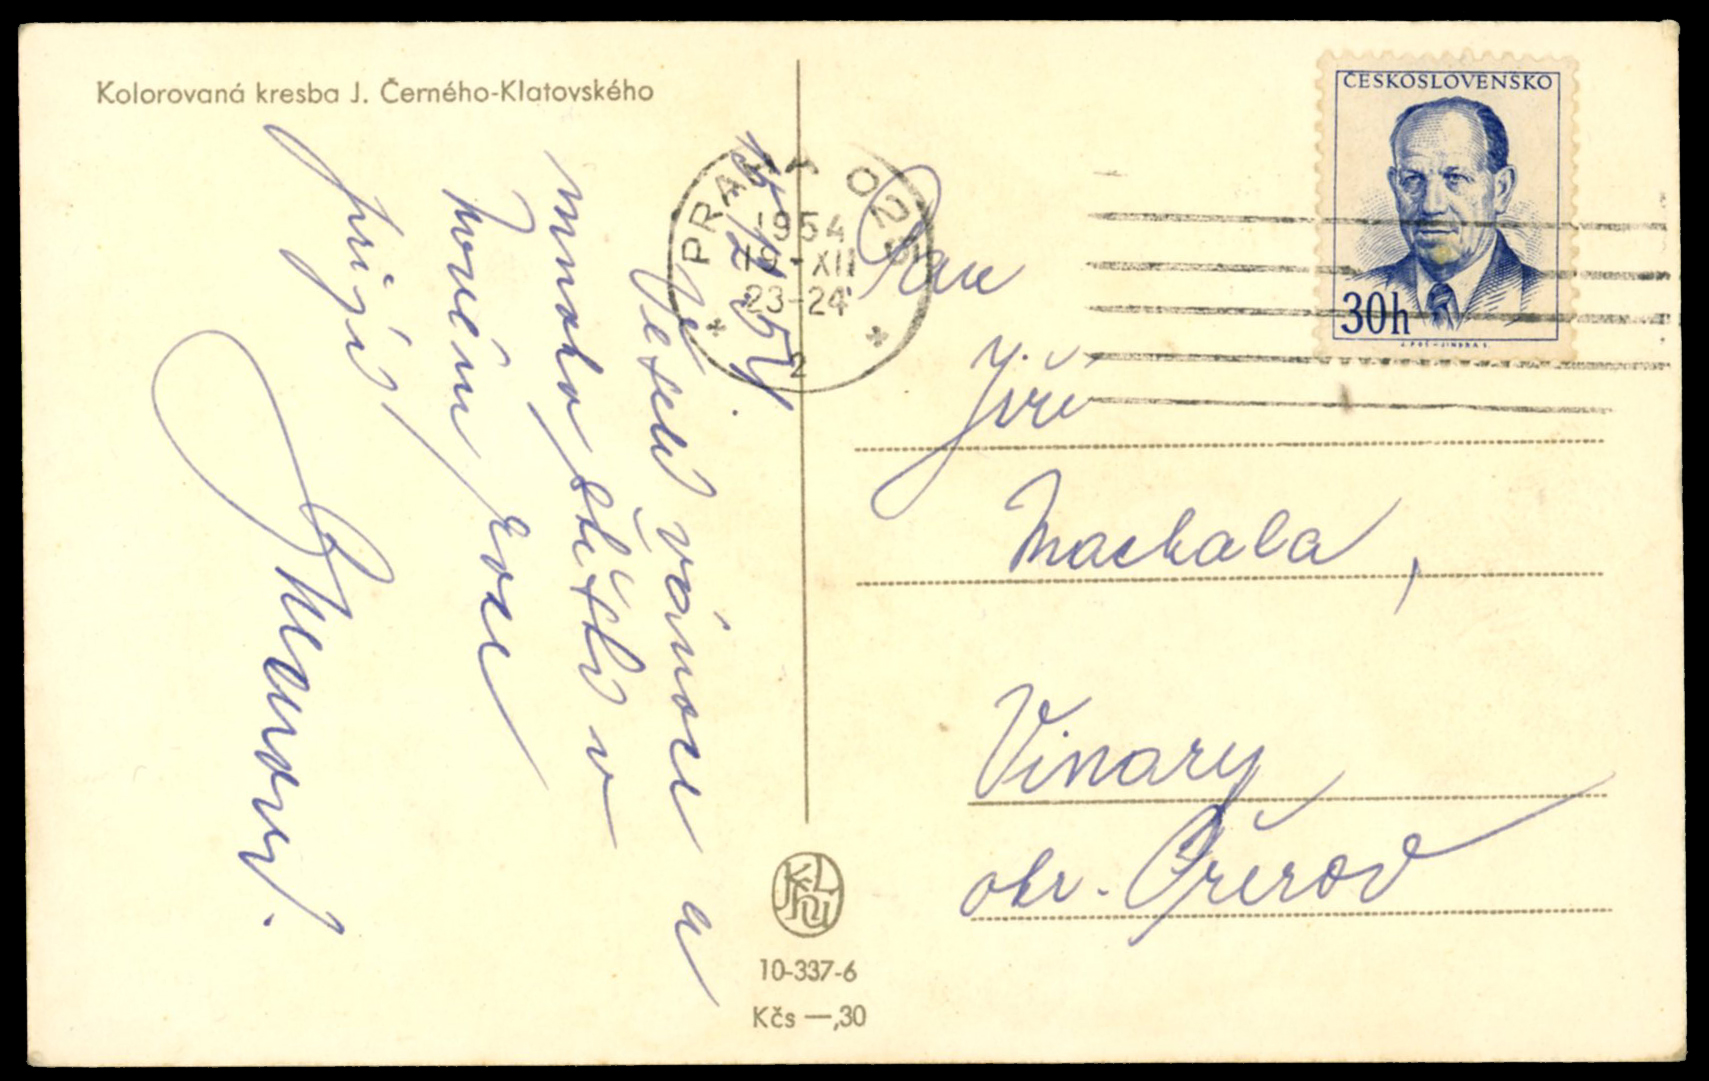 Kolorovaná kresba J. Černého-Klatovského
15/12 54.
Veselé vánoce a
mnoho štěstí v
novém roce
přejí
ČESKOSLOVENSKO
30h
PRAHA 025
1954
19-XII
23-24
2
Pan
Jiří
Machala,
Vinary
okr. Přerov
10-337-6
Kčs —,30